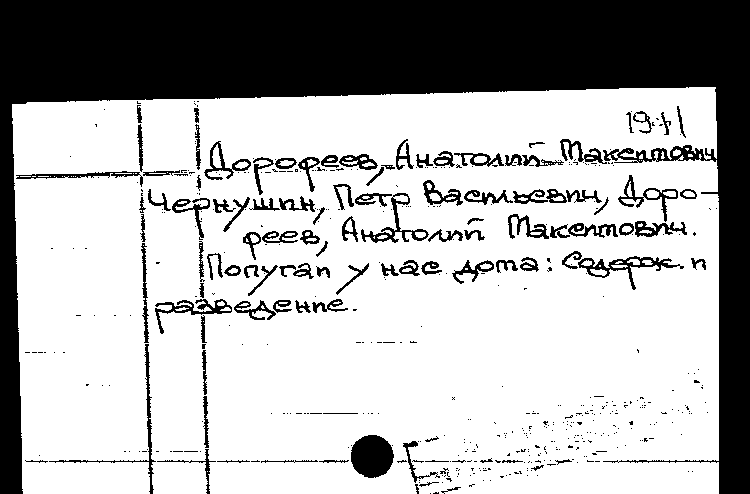 Дорофеев, Анатолий Максимович
Чернушин, Петр Васильевич, Доро-
феев, Анатолий Максимович.
Попугаи у нас дома: Содерж. и
разведение.